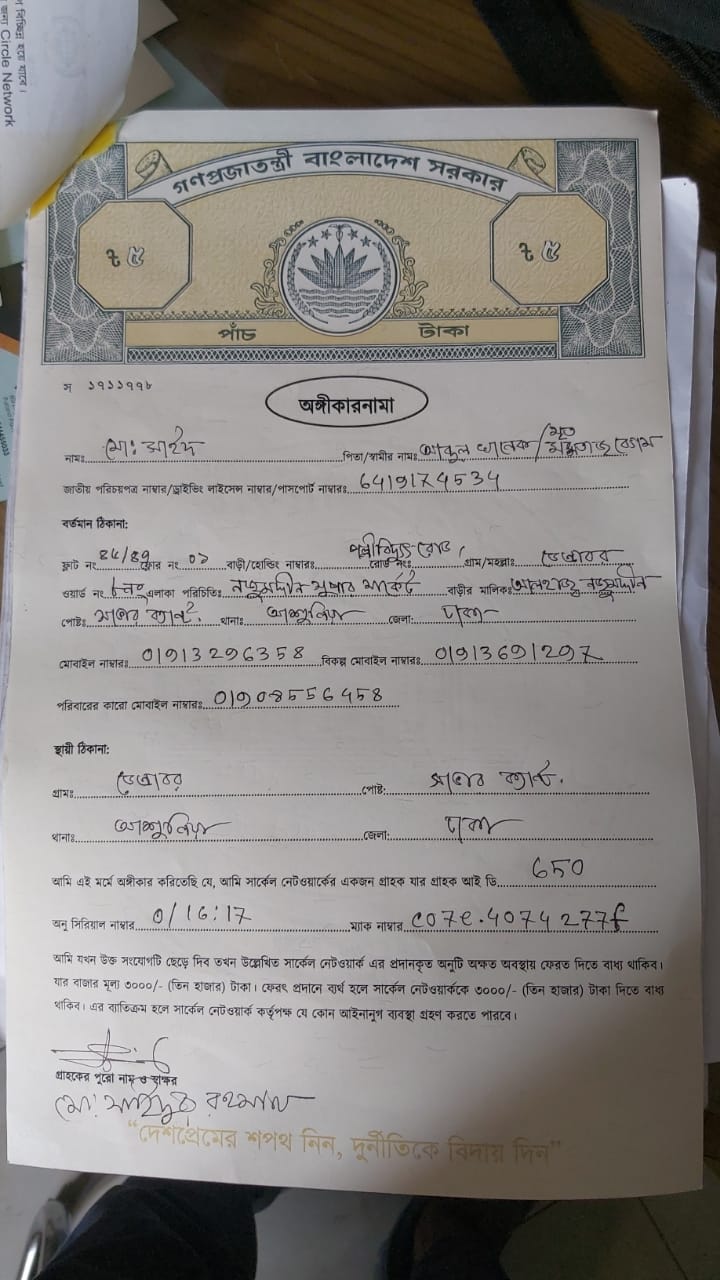 ণ বিচ্ছিন্ন হয়ে যাবে।
জন্য Circle Network
গণপ্রজাতন্ত্রী বাংলাদেশ সরকার
৳ ৫ ৳ ৫
পাঁচ টাকা
স ১৭১১৭৭৮
অঙ্গীকারনামা
নামঃ মো: সাইদ পিতা/স্বামীর নামঃ আব্দুল খালেক/মৃত মমতাজ বেগম
জাতীয় পরিচয়পত্র নাম্বার/ড্রাইভিং লাইসেন্স নাম্বার/পাসপোর্ট নাম্বারঃ 6419174534
বর্তমান ঠিকানা:
ফ্লাট নং 84/89 ফ্লোর নং ০১ বাড়ী/হোল্ডিং নাম্বারঃ পল্লীবিদ্যুৎ রোড, রোড নংঃ গ্রাম/মহল্লাঃ ডেন্ডাবর
ওয়ার্ড নং এলাকা পরিচিতিঃ সুপার মার্কেট বাড়ীর মালিকঃ আলহাজ্ব
পোষ্টঃ সাভার ক্যান্ট. থানাঃ আশুলিয়া জেলা: ঢাকা
মোবাইল নাম্বারঃ 01913296358 বিকল্প মোবাইল নাম্বারঃ 01913691297
পরিবারের কারো মোবাইল নাম্বারঃ 01908556458
স্থায়ী ঠিকানা:
গ্রামঃ ডেন্ডাবর পোষ্ট: সাভার ক্যান্ট.
থানাঃ আশুলিয়া জেলা: ঢাকা
আমি এই মর্মে অঙ্গীকার করিতেছি যে, আমি সার্কেল নেটওয়ার্কের একজন গ্রাহক যার গ্রাহক আই ডি 650
অনু সিরিয়াল নাম্বার 0/16:17 ম্যাক নাম্বার c07e.4074 277f
আমি যখন উক্ত সংযোগটি ছেড়ে দিব তখন উল্লেখিত সার্কেল নেটওয়ার্ক এর প্রদানকৃত অনুটি অক্ষত অবস্থায় ফেরত দিতে বাধ্য থাকিব।
যার বাজার মূল্য ৩০০০/- (তিন হাজার) টাকা। ফেরৎ প্রদানে ব্যর্থ হলে সার্কেল নেটওয়ার্ককে ৩০০০/- (তিন হাজার) টাকা দিতে বাধ্য
থাকিব। এর ব্যতিক্রম হলে সার্কেল নেটওয়ার্ক কর্তৃপক্ষ যে কোন আইনানুগ ব্যবস্থা গ্রহণ করতে পারবে।
গ্রাহকের পুরো নাম ও স্বাক্ষর
মো: সাইদুর রহমান
“দেশপ্রেমের শপথ নিন, দুর্নীতিকে বিদায় দিন”